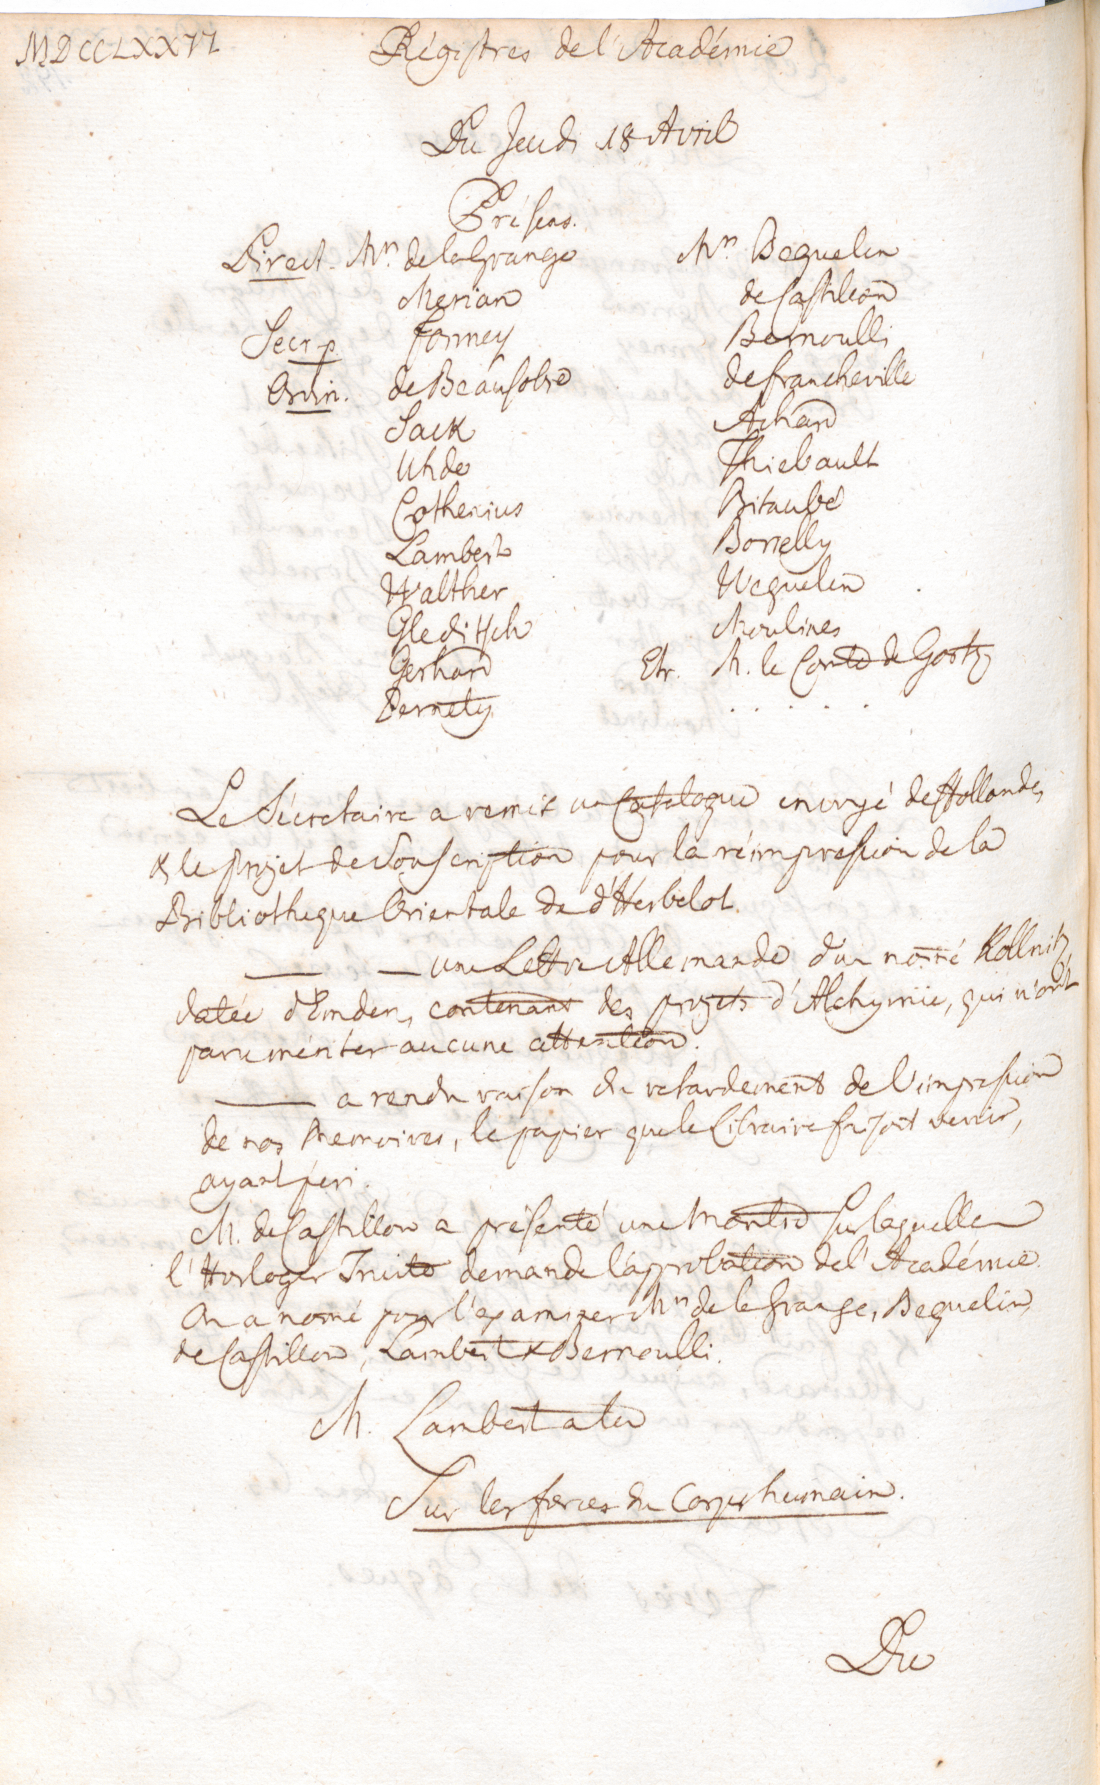 MDCCLXXVI
Régistres de l'Académie
Du Jeudi 18 Avril
Présens.
Direct. Mrs. de la Grange Mrs. Beguelin
Merian de Castillon
Secr. p. Formey Bernoulli
Ordin. de Beausobre de Francheville
Sack Achard
Uhde Thiebault
Cothenius Bitaubé
Lambert Borrelly
Walther Weguelin
Gleditsch Moulines
Gerhard Etr. M. le Comte de Goertz
Pernety . . . . .
Le Sécretaire a remis un Catalogue envoyé de Hollande,
& le projet de Souscription pour la réimpression de la
Bibliotheque Orientale de d'Herbelot.
—— — une Lettre Allemande d'un nomé Kollnitz
datée d'Emden, contenant des projets d'Alchymie, qui n'ont
paru mériter aucune attention.
—— a rendu raison du retardement de l'impression
de nos Memoires, le papier que le Libraire faisoit venir,
ayant péri.
M. de Castillon a présenté une Montre sur laquelle
l'Horloger demande l'approbation de l'Académie.
On a nomé pour l'examiner Mrs de la Grange, Beguelin,
de Castillon, Lambert & Bernoulli.
M. Lambert a lu
Sur les forces du Corps humain.
Du